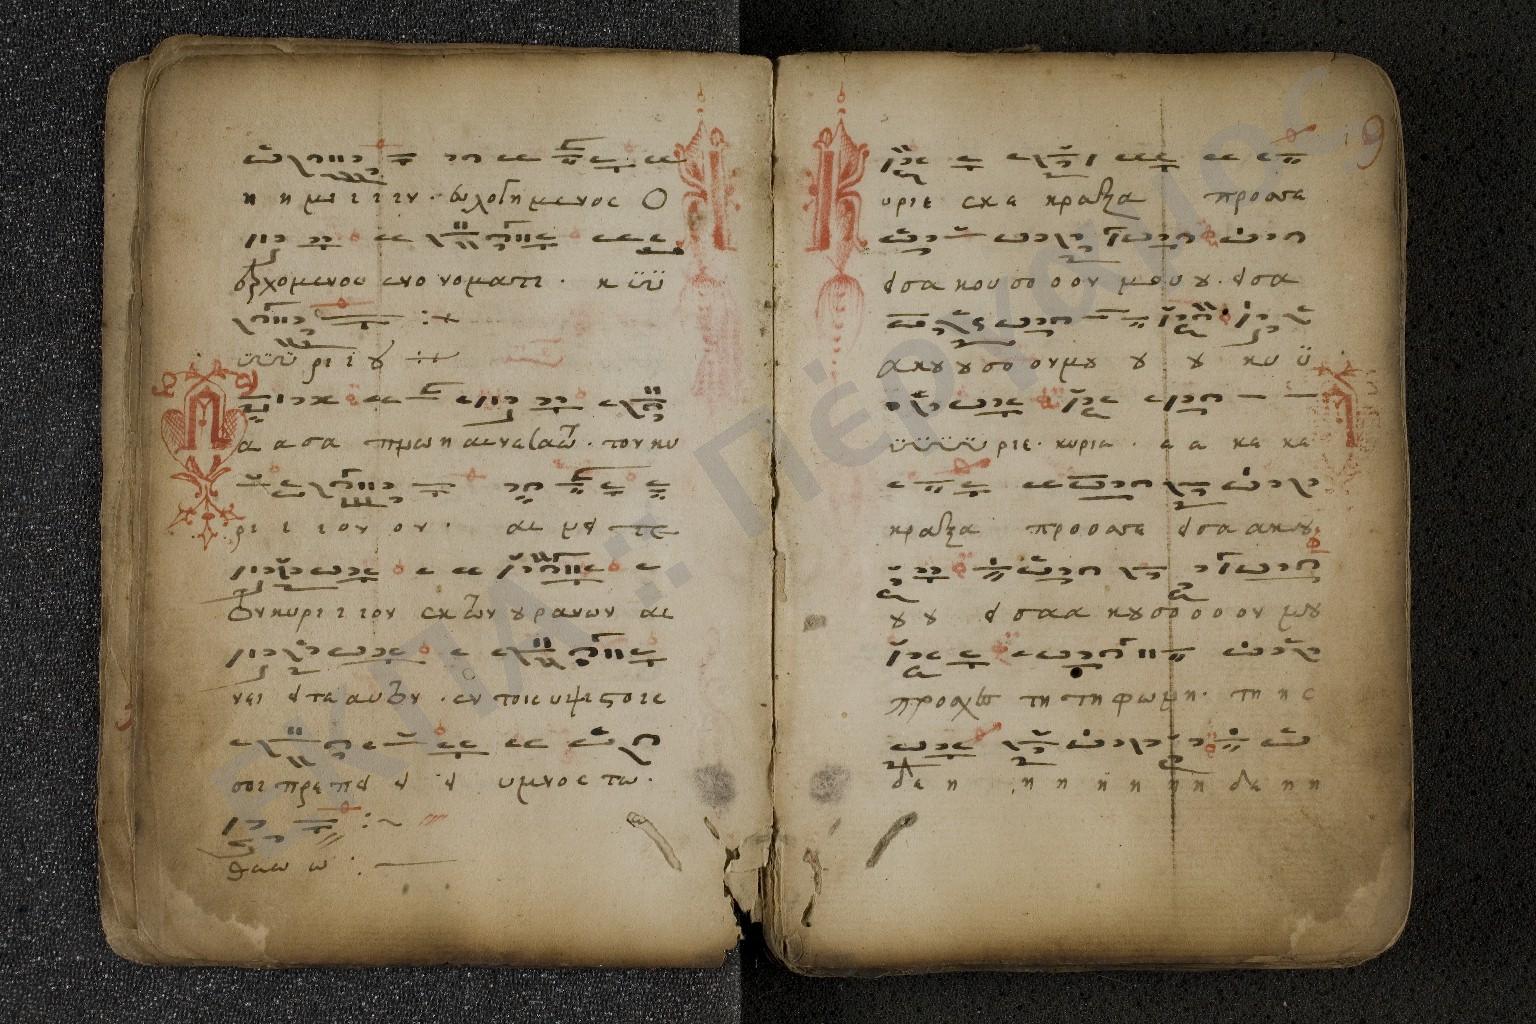 η η μω ι ι ιν · ευλογημενος Ο
ερχομενος ενο νοματι · κ ϋϋ
ϋϋϋ ρι ι ȣ
Π α α σα πνοη αινεσατω · τον κυ
ρι ι ι ον ον · αι νει τε
τον κυρι ι ι ον εκ των ȣρανων αι
νει ει τε αυτον · εν τοις υψιστοις
σοι πρεπει ει ει υμνος τω ·
θεω ω
9
Κ υριε εκ ε κραξα προς σε
εισα κου σο ο ον μου ȣ · εισα
ακȣ ȣ σο ον μȣ ȣ ȣ κυ ϋ
ϋϋϋϋ ριε · κυριε · ε ε κε κε
κραξα προς σε εισα ακȣ
ȣ ȣ εισαα κȣσο ο ο ον μȣ
προσχες τη τη φωνη · τη η ς
δε η η η η η η η δε η η
ΕΚΠΑ :: ΠΕΡΓΑΜΟΣ